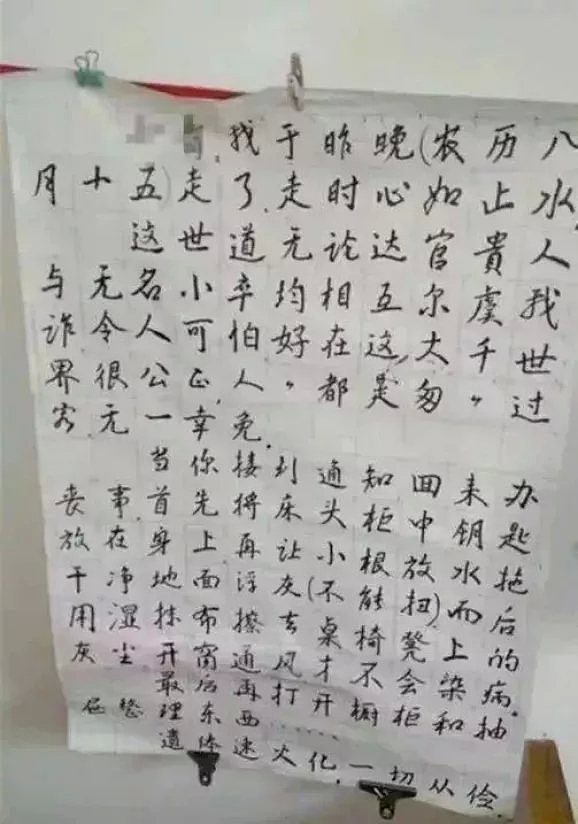 我于昨晚(农历八
月十五)走了,走时心如止水,
这世道无论达官貴人
与无名小卒均相互尔虞我
诈令人可怕好在这,大千世
界很公正,人〃都是匆〃过
客,无一幸免.
当你接到通知回来办
丧事,首先将床头柜中钥匙
放在身上再让小根放水拖
干净地面浮灰(不能扭)而后
用湿抹布擦去桌椅凳上的
灰尘开窗通风才不会染病.
最后再打开橱柜和抽
屉整理东西……
遗体速火化,一切从俭.